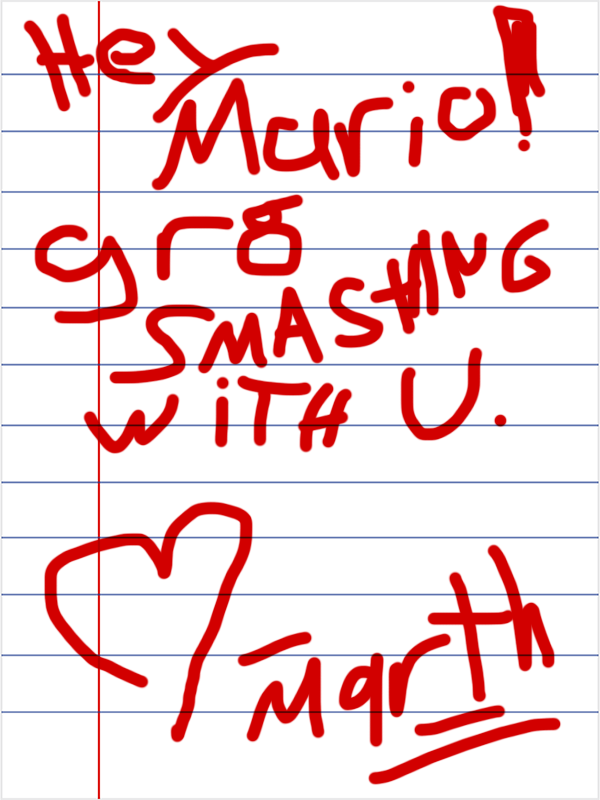 Hey
Mario!
gr8
SMASHING
WiTH U.
Marth